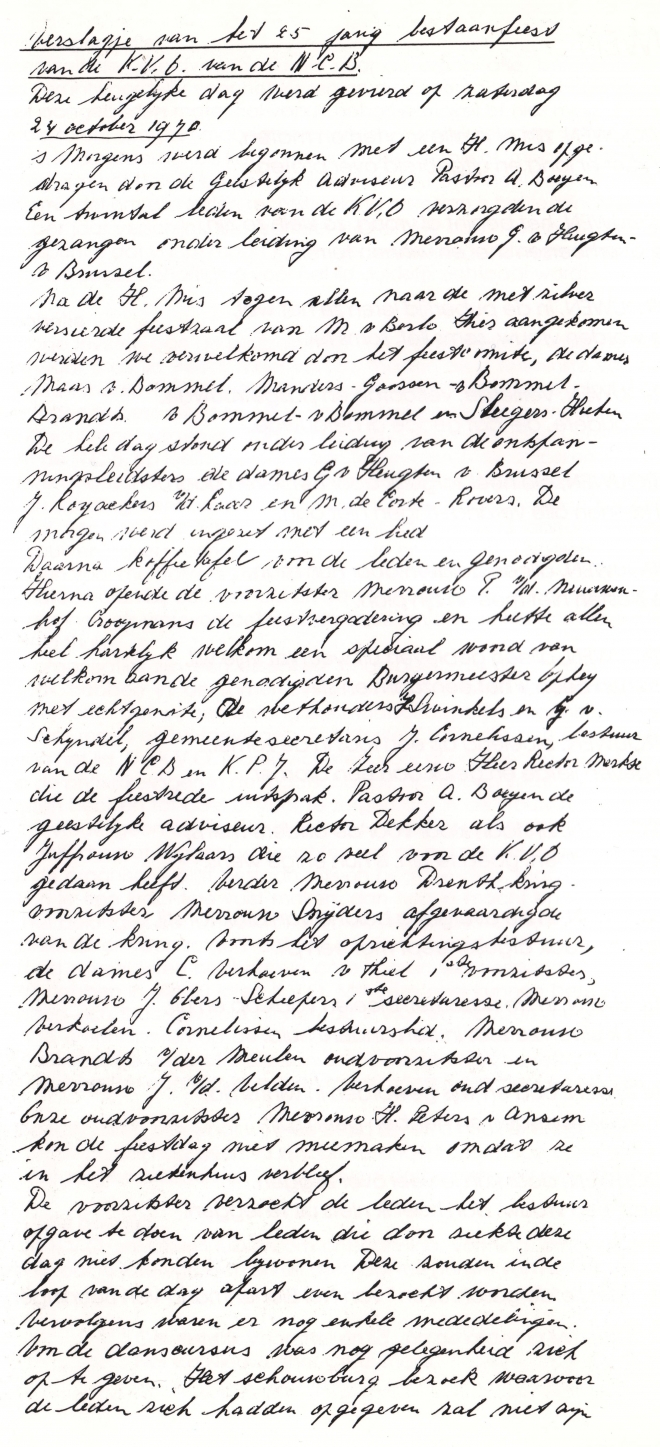 Verslagje van het 25 jarig bestaanfeest
van de K.V.O. van de N.C.B.
Deze heugelyke dag werd gevierd op zaterdag
24 october 1970.
's Morgens werd begonnen met een H. Mis opge-
dragen door de Geestelyk Adviseur Pastoor A. Boeyen
Een twintal leden van de K.V.O verzorgden de
gezangen onder leiding van Mevrouw G. v Heugten-
v Brussel.
Na de H. Mis togen allen naar de met zilver
versierde feestzaal van M v Berlo Hier aangekomen
werden we verwelkomd door het feestcomite, de dames
Maas v. Bommel. Manders-Goossen-v Bommel-
Brandts v Bommel-v Bommel en Sleegers-Hoeben
De hele dag stond onder leiding van de ontspan-
ningsleidsters de dames G v Heugten v. Brussel
J. Royackers v/d Laar en M. de Corte-Rovers. De
morgen werd ingezet met een lied
Daarna koffietafel voor de leden en genodigden.
Hierna opende de voorzitster Mevrouw P. v/d.
hof Croymans de feestvergadering en heette allen
heel hartelyk welkom een speciaal woord van
welkom aan de genodigden Burgermeester Ophey
met echtgenote, De wethouders Swinkels en G. v.
Schyndel, gemeentesecretaris J. Cornelissen, bestuur
van de N C B en K.P.J. De Zeer eerw Heer Rector Merkse
die de feestrede uitsprak. Pastoor A. Boeyen de
geestelyke adviseur. Rector Dekker als ook
Juffrouw Wylaars die zo veel voor de K.V.O
gedaan heeft. Verder Mevrouw Drenth kring-
voorzitster Mevrouw Snyders afgevaardigde
van de kring. Voorts het oprichtingsbestuur,
de dames C. Verhoeven v Thiel 1ste voorzitster,
Mevrouw J. Obers-Scheepers 1ste secretaresse. Mevrouw
Verkoelen-Cornelissen bestuurslid. Mevrouw
Brandts v/der Meulen oudvoorzitster en
Mevrouw J. v/d. Velden-Verhoeven oud secretaresse
Onze oudvoorzitster Mevrouw H. Peters v Ansem
kon de feestdag niet meemaken omdat ze
in het ziekenhuis verbleef.
De voorzitster verzocht de leden het bestuur
opgave te doen van leden die door ziekte deze
dag niet konden bywonen Deze zouden in de
loop van de dag apart even bezocht worden
Vervolgens waren er nog enkele mededelingen.
Voor de danscursus was nog gelegenheid zich
op te geven. Het schouwburg bezoek waarvoor
de leden zich hadden opgegeven zal niet zyn